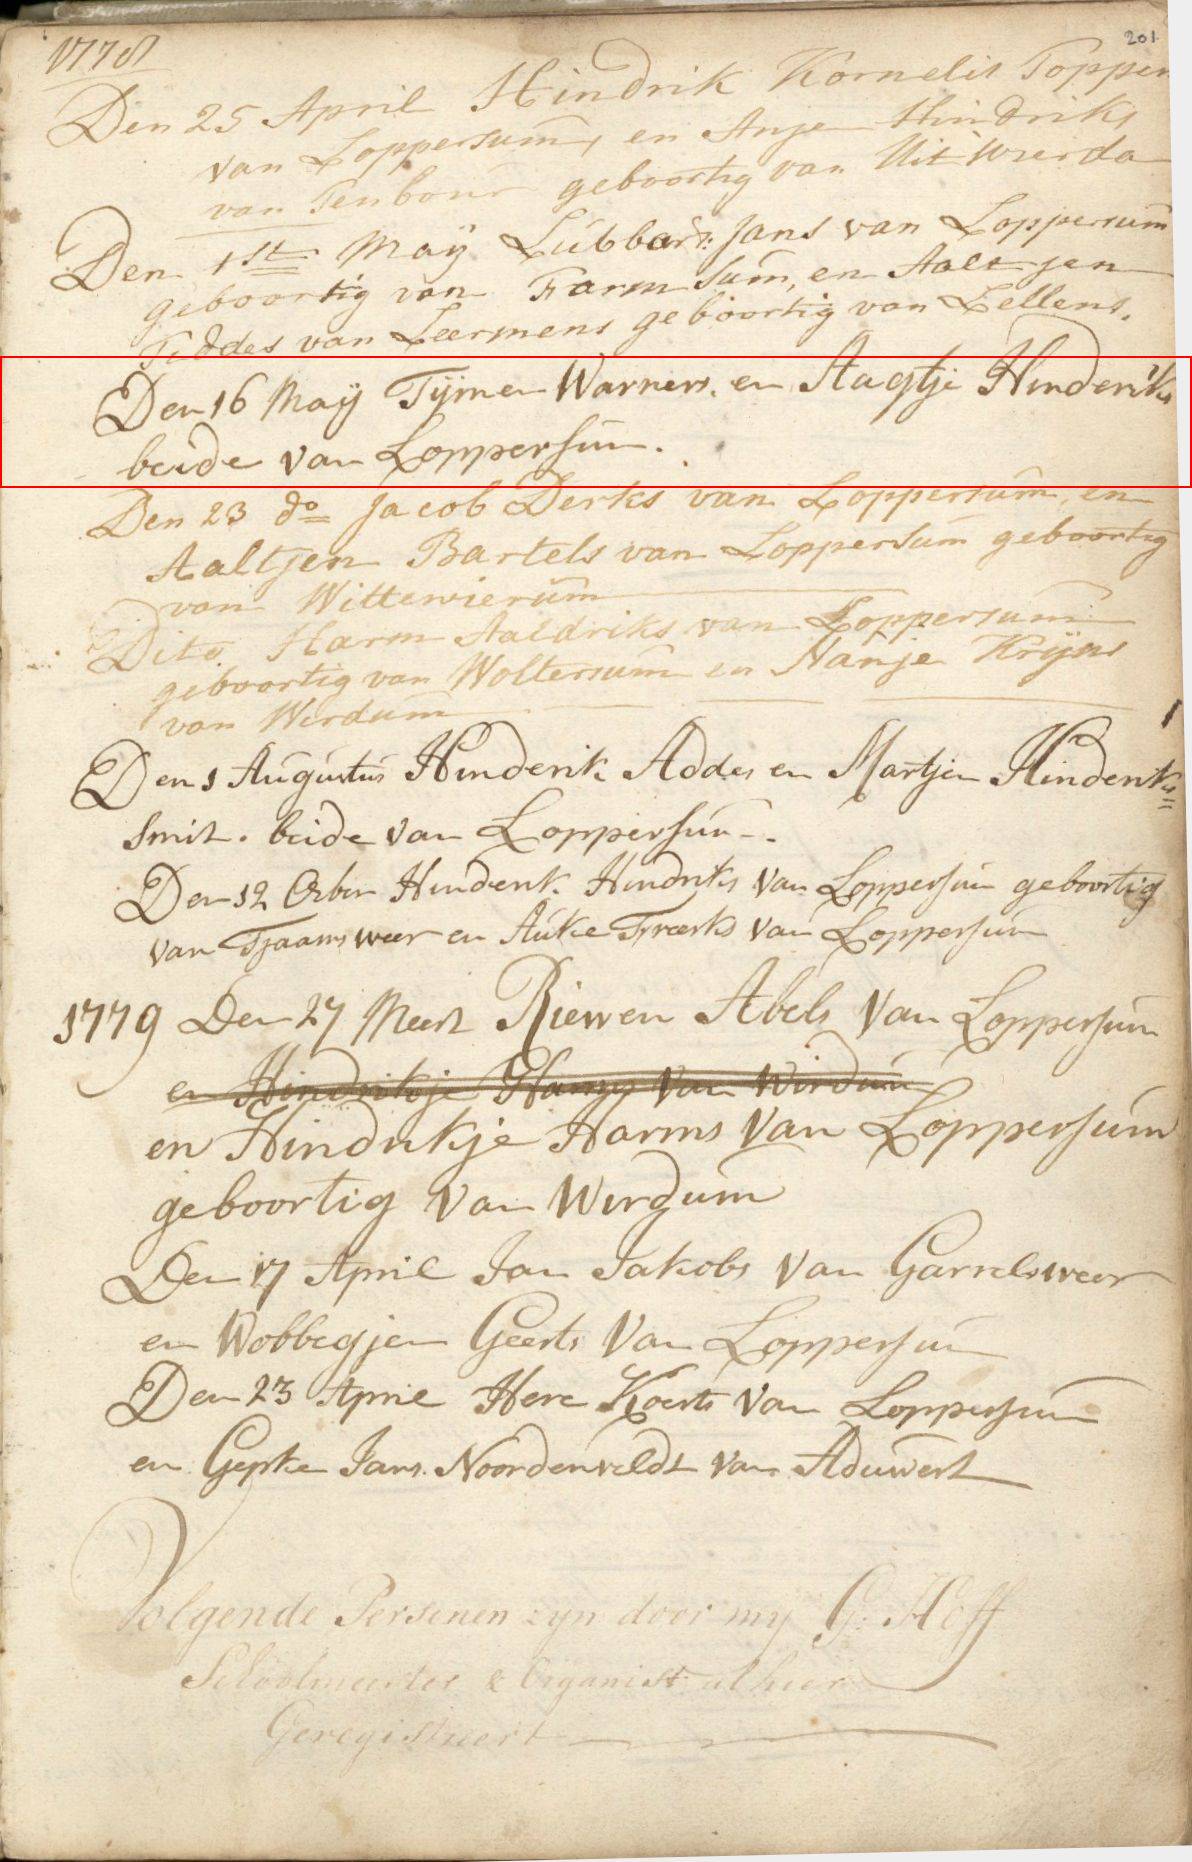 201
1778
Den 25 April Hindrik Kornelis Topper
van Loppersum, en Anje Hindriks
van Tenboer geboortig van Uit Wierda
Den 1st May Lubbart Jans van Loppersum
geboortig van Farmsum, en Aaltjen
Fiddes van Leermens geboortig van Zellens.
Den 16 May Tijmen Warners. en Aagtje Hinderiks
beide van Loppersum.
Den 23 do Jacob Derks van Loppersum, en
Aaltjen Bartels van Loppersum geboortig
van Wittewierum
Dito Harm Aaldriks van Loppersum
geboortig van Woltersum en Nanje Krijns
van Wirdum
Den 1 Augustus Hinderik Addes en Martjen Hinderiks
Smit. beide van Loppersum.
Den 12 Ocber Hinderik Hindriks van Loppersum geboortig
van Tjaamsweer en Auke Freerks van Loppersum
1779 Den 27 Meert Riewen Abels van Loppersum
en Hindrikje Harms van Wirdum
en Hindrikje Harms van Loppersum
geboortig van Wirdum
Den 17 April Jan Jakobs van Garrelsweer
en Wobbegjen Geerts van Loppersum
Den 23 April Here Koerts van Loppersum
en Gepke Jans Noordenveldt van Aduwert
Volgende Personen zyn door my G. Hoff
Schoolmeester & Organist alhier
Geregistreert